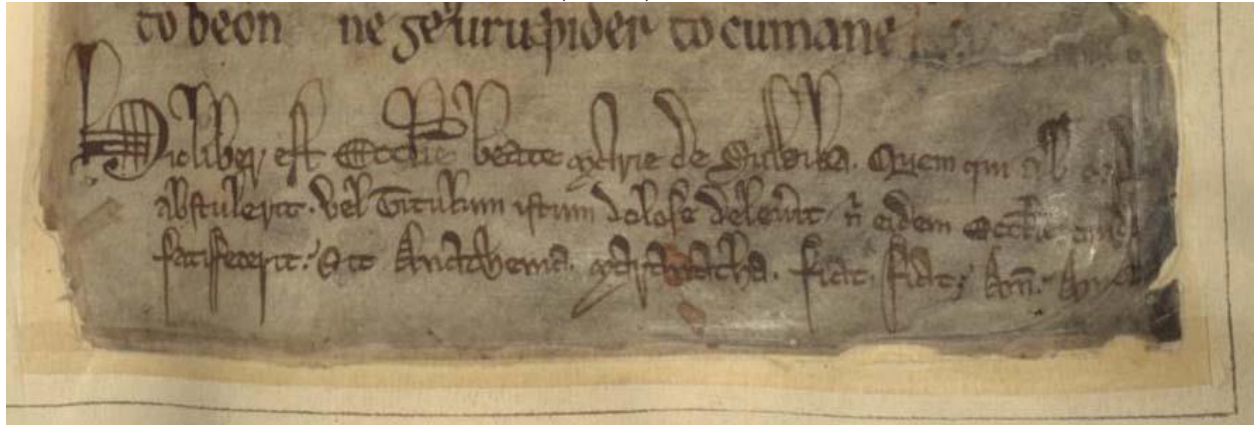 to beon ne ƿider to cumane
Hic liber est Ecclie beate Marie de Suwika. Quem qui ab
abstulerit. vel Titulum istum dolose delev̾it. ñ eidem Ecclie
satisfecerit. Sit Anathema. maranatha. fiat. fiat; Am̃. Am